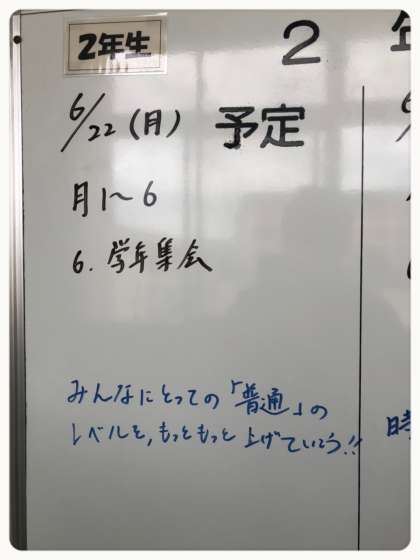 2年生
2
6/22(月) 予定
月1〜6
6. 学年集会
みんなにとっての「普通」の
レベルを、もっともっと上げていこう!!
時